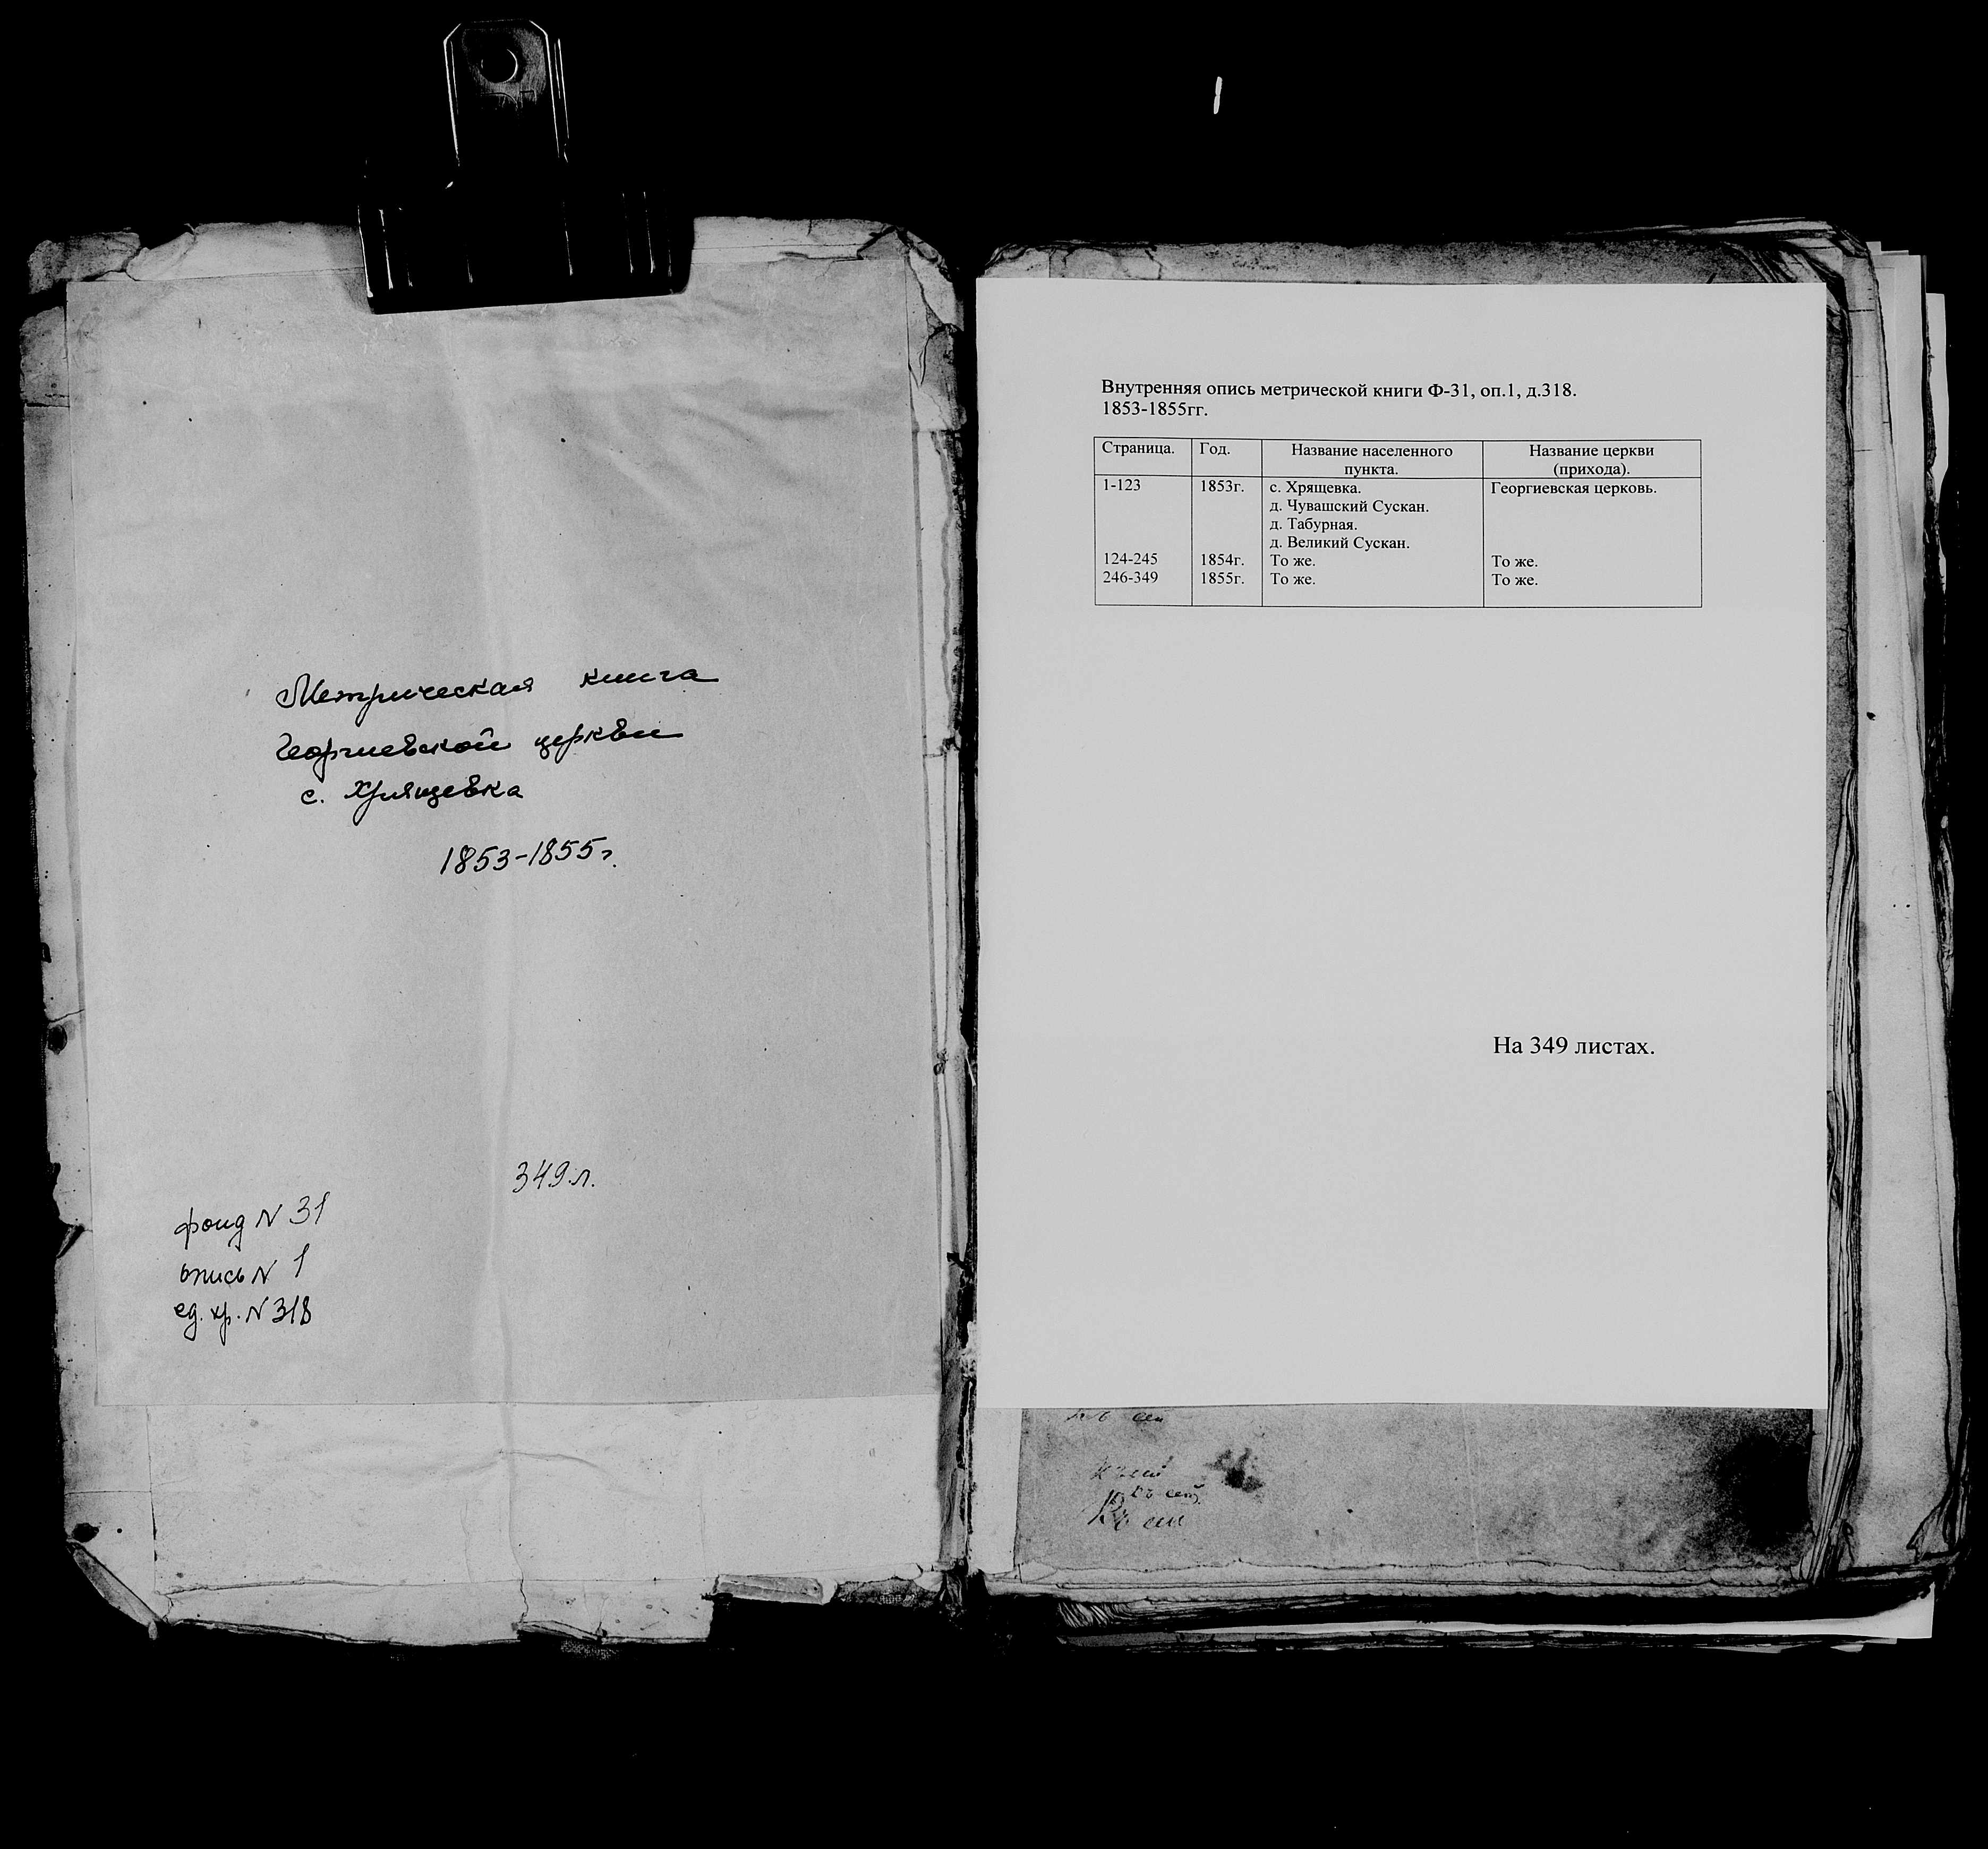 Метрическая книга
Георгиевской церкви
с. Хрящевка
1853-1855г.
349 л.
фонд N 31
опись N 1
ед. хр. N 318
Внутренняя опись метрической книги Ф-31, оп.1, д.318.
1853-1855гг.
Страница. Год. Название населенного пункта. Название церкви (прихода).
1-123 1853г. с. Хрящевка. Георгиевская церковь.
д. Чувашский Сускан.
д. Табурная.
д. Великий Сускан.
124-245 1854г. То же. То же.
246-349 1855г. То же. То же.
На 349 листах.